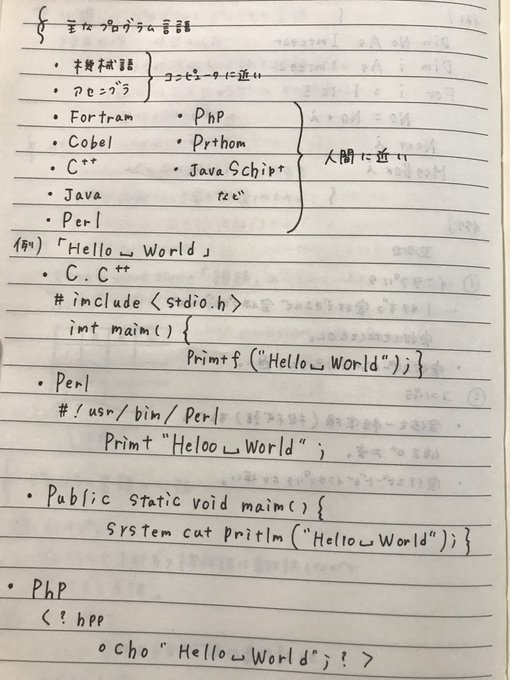 主なプログラム言語
・機械語
・アセンブラ
コンピュータに近い
・Fortram
・Cobel
・C++
・Java
・Perl
・PhP
・Pythom
・Java Schipt
など
人間に近い
例)「Hello␣World」
・C.C++
# imclude <stdio.h>
imt maim() {
Primtf ("Hello␣World");}
・Perl
#!usr/bin/Perl
Primt "Heloo␣World" ;
・Public static void maim() {
System cut pritlm ("Hello␣World");}
・PhP
<? hpp
echo "Hello␣World"; ? >